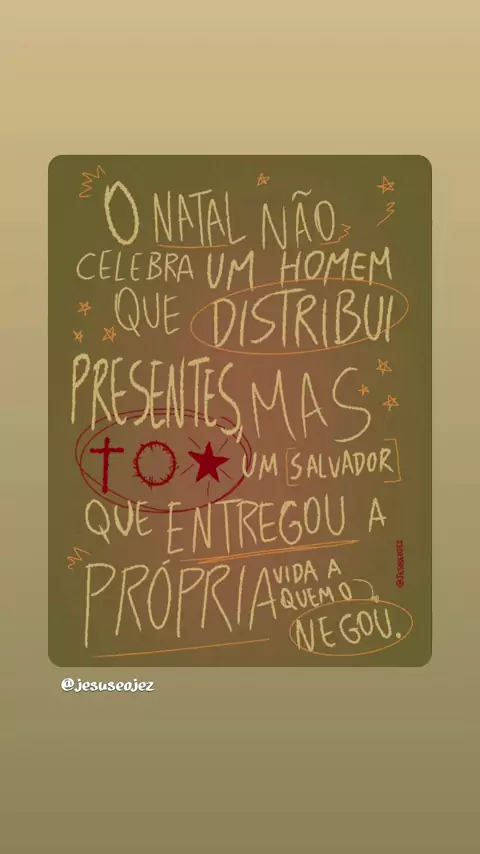 O NATAL NÃO
CELEBRA UM HOMEM
QUE DISTRIBUI
PRESENTES, MAS
UM [SALVADOR]
QUE ENTREGOU A
PRÓPRIA VIDA A
QUEM O
NEGOU.
@JESUSEOJEZ
@jesuseojez